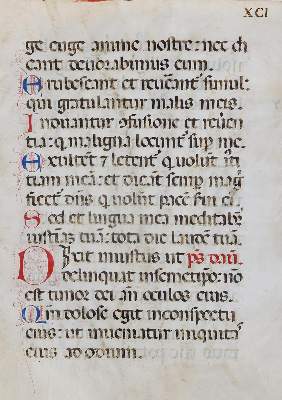 XCI
ge euge anime nostre: nec di
cant devorabimus eum.
Erubescant et reveant simul:
qui gratulantur malis meis.
Induantur ꝯfusione et reveren
tia: q maligna locunt sup me.
Exultent ⁊ letent q volūt iusti
tiam meā: et dicāt semp mag
ficet dñs q volūt pacē s̄vi ei.
Sed et lingua mea meditabit
iustitiā tuā: tota die laudē tuā.
Dixit iniustus ut ps. david.
delinquat in semetipo: nō
est timor dei an̄ oculos eius.
Qm̄ dolose egit in conspectu
eius: ut inveniatur iniquitas
eius ad odium.